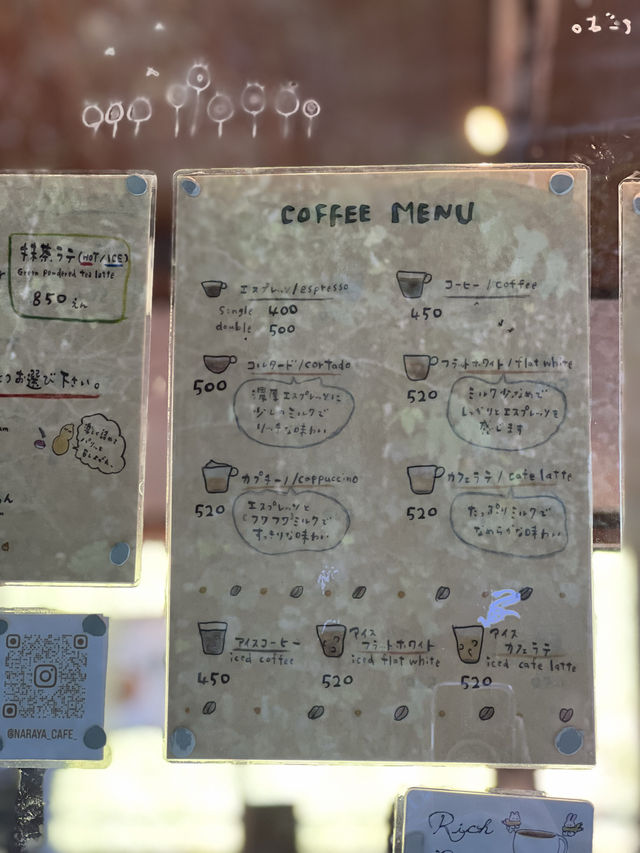 COFFEE MENU
エスプレッソ/espresso
single 400
double 500
コーヒー/coffee
450
コルタード/cortado
500
濃厚エスプレッソに
少しのミルクで
リッチな味わい
フラットホワイト/flat white
520
ミルク少なめで
しっかりとエスプレッソを
感じます
カプチーノ/cappuccino
520
エスプレッソと
フワフワミルクで
すっきりな味わい
カフェラテ/cafe latte
520
たっぷりミルクで
なめらかな味わい
アイスコーヒー
iced coffee
450
アイス
フラットホワイト
iced flat white
520
アイス
カフェラテ
iced cafe latte
520
抹茶ラテ(HOT/ICE)
Green powdered tea latte
850えん
お選び下さい。
@NARAYA_CAFE_
Rich